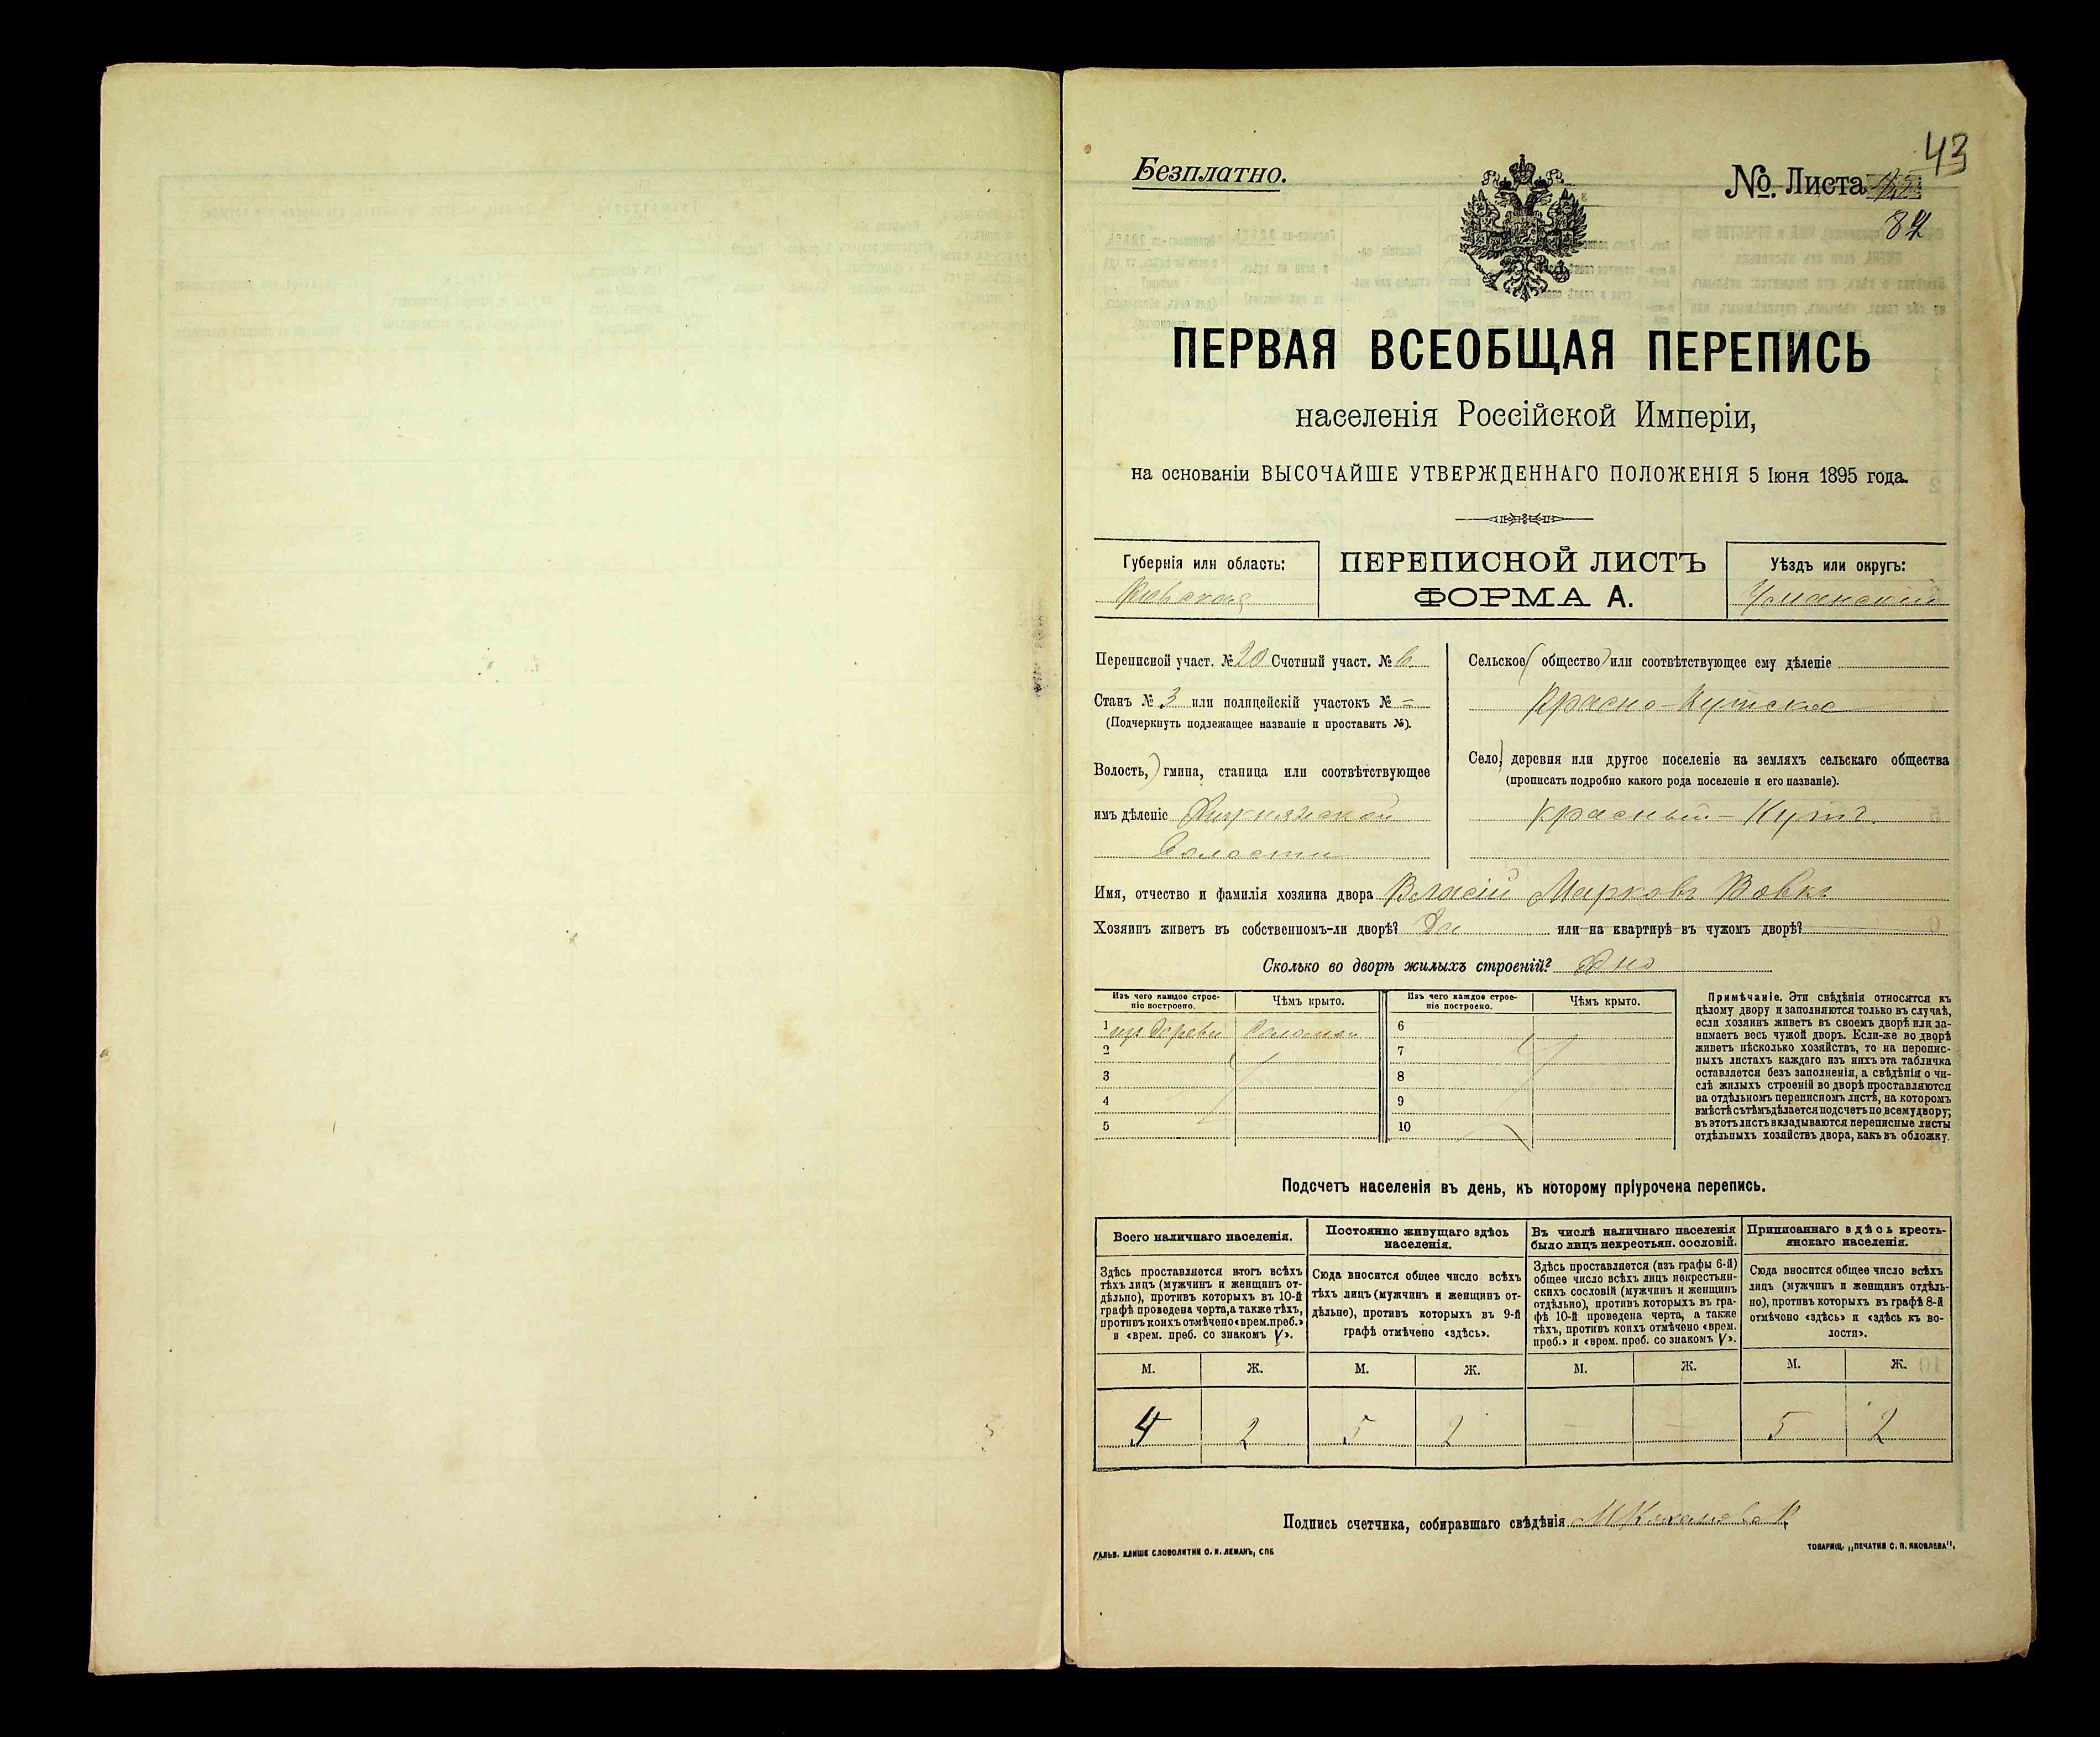 43
Безплатно.
№ Листа
84
ПЕРВАЯ ВСЕОБЩАЯ ПЕРЕПИСЬ
населенія Россійской Имперіи,
на основаніи ВЫСОЧАЙШЕ УТВЕРЖДЕННАГО ПОЛОЖЕНІЯ 5 Іюня 1895 года.
Губернія или область:
Кіевская
ПЕРЕПИСНОЙ ЛИСТЪ
ФОРМА А.
Уѣздъ или округъ:
Уманскій
Переписной участ. № 20 Счетный участ. № 6
Станъ № 3 или полицейскій участокъ № =
(Подчеркнуть подлежащее названіе и проставить №).
Волость, гмина, станица или соотвѣтствующее
имъ дѣленіе
Волости
Сельское общество или соотвѣтствующее ему дѣленіе
Красно-Кутское
Село, деревня или другое поселеніе на земляхъ сельскаго общества
(прописать подробно какого рода поселеніе и его названіе).
Красный-Кутъ
Имя, отчество и фамилія хозяина двора Власій Марковъ Вовкъ
Хозяинъ живетъ въ собственномъ-ли дворѣ? Да или на квартирѣ въ чужомъ дворѣ?
Сколько во дворѣ жилыхъ строеній? Одно
Изъ чего каждое строе-
ніе построено.
Чѣмъ крыто.
Изъ чего каждое строе-
ніе построено.
Чѣмъ крыто.
1 изъ дерева Соломой 6
2 7
3 8
4 9
5 10
Примѣчаніе. Эти свѣдѣнія относятся къ
цѣлому двору и заполняются только въ случаѣ,
если хозяинъ живетъ въ своемъ дворѣ или за-
нимаетъ весь чужой дворъ. Если-же во дворѣ
живетъ нѣсколько хозяйствъ, то на перепис-
ныхъ листахъ каждаго изъ нихъ эта табличка
оставляется безъ заполненія, а свѣдѣнія о чи-
слѣ жилыхъ строеній во дворѣ проставляются
на отдѣльномъ переписномъ листѣ, на которомъ
вмѣстѣ съ тѣмъ дѣлается подсчетъ по всему двору;
въ этотъ листъ вкладываются переписные листы
отдѣльныхъ хозяйствъ двора, какъ въ обложку.
Подсчетъ населенія въ день, къ которому пріурочена перепись.
Всего наличнаго населенія.
Здѣсь проставляется итогъ всѣхъ
тѣхъ лицъ (мужчинъ и женщинъ от-
дѣльно), противъ которыхъ въ 10-й
графѣ проведена черта, а также тѣхъ,
противъ коихъ отмѣчено «врем. преб.»
и «врем. преб. со знакомъ V».
Постоянно живущаго здѣсь
населенія.
Сюда вносится общее число всѣхъ
тѣхъ лицъ (мужчинъ и женщинъ от-
дѣльно), противъ которыхъ въ 9-й
графѣ отмѣчено «здѣсь».
Въ числѣ наличнаго населенія
было лицъ некрестьян. сословій.
Здѣсь проставляется (изъ графы 6-й)
общее число всѣхъ лицъ некрестьян-
скихъ сословій (мужчинъ и женщинъ
отдѣльно), противъ которыхъ въ гра-
фѣ 10-й проведена черта, а также
тѣхъ, противъ коихъ отмѣчено «врем.
преб.» и «врем. преб. со знакомъ V».
Приписаннаго здѣсь кресть-
янскаго населенія.
Сюда вносится общее число всѣхъ
лицъ (мужчинъ и женщинъ отдѣль-
но), противъ которыхъ въ графѣ 8-й
отмѣчено «здѣсь» и «здѣсь къ во-
лости».
М. Ж. М. Ж. М. Ж. М. Ж.
4 2 5 2 — — 5 2
Подпись счетчика, собиравшаго свѣдѣнія
ГАЛЬВ. КЛИШЕ СЛОВОЛИТНИ О. И. ЛЕМАНЪ, СПБ
ТОВАРИЩ. „ПЕЧАТНЯ С. П. ЯКОВЛЕВА".